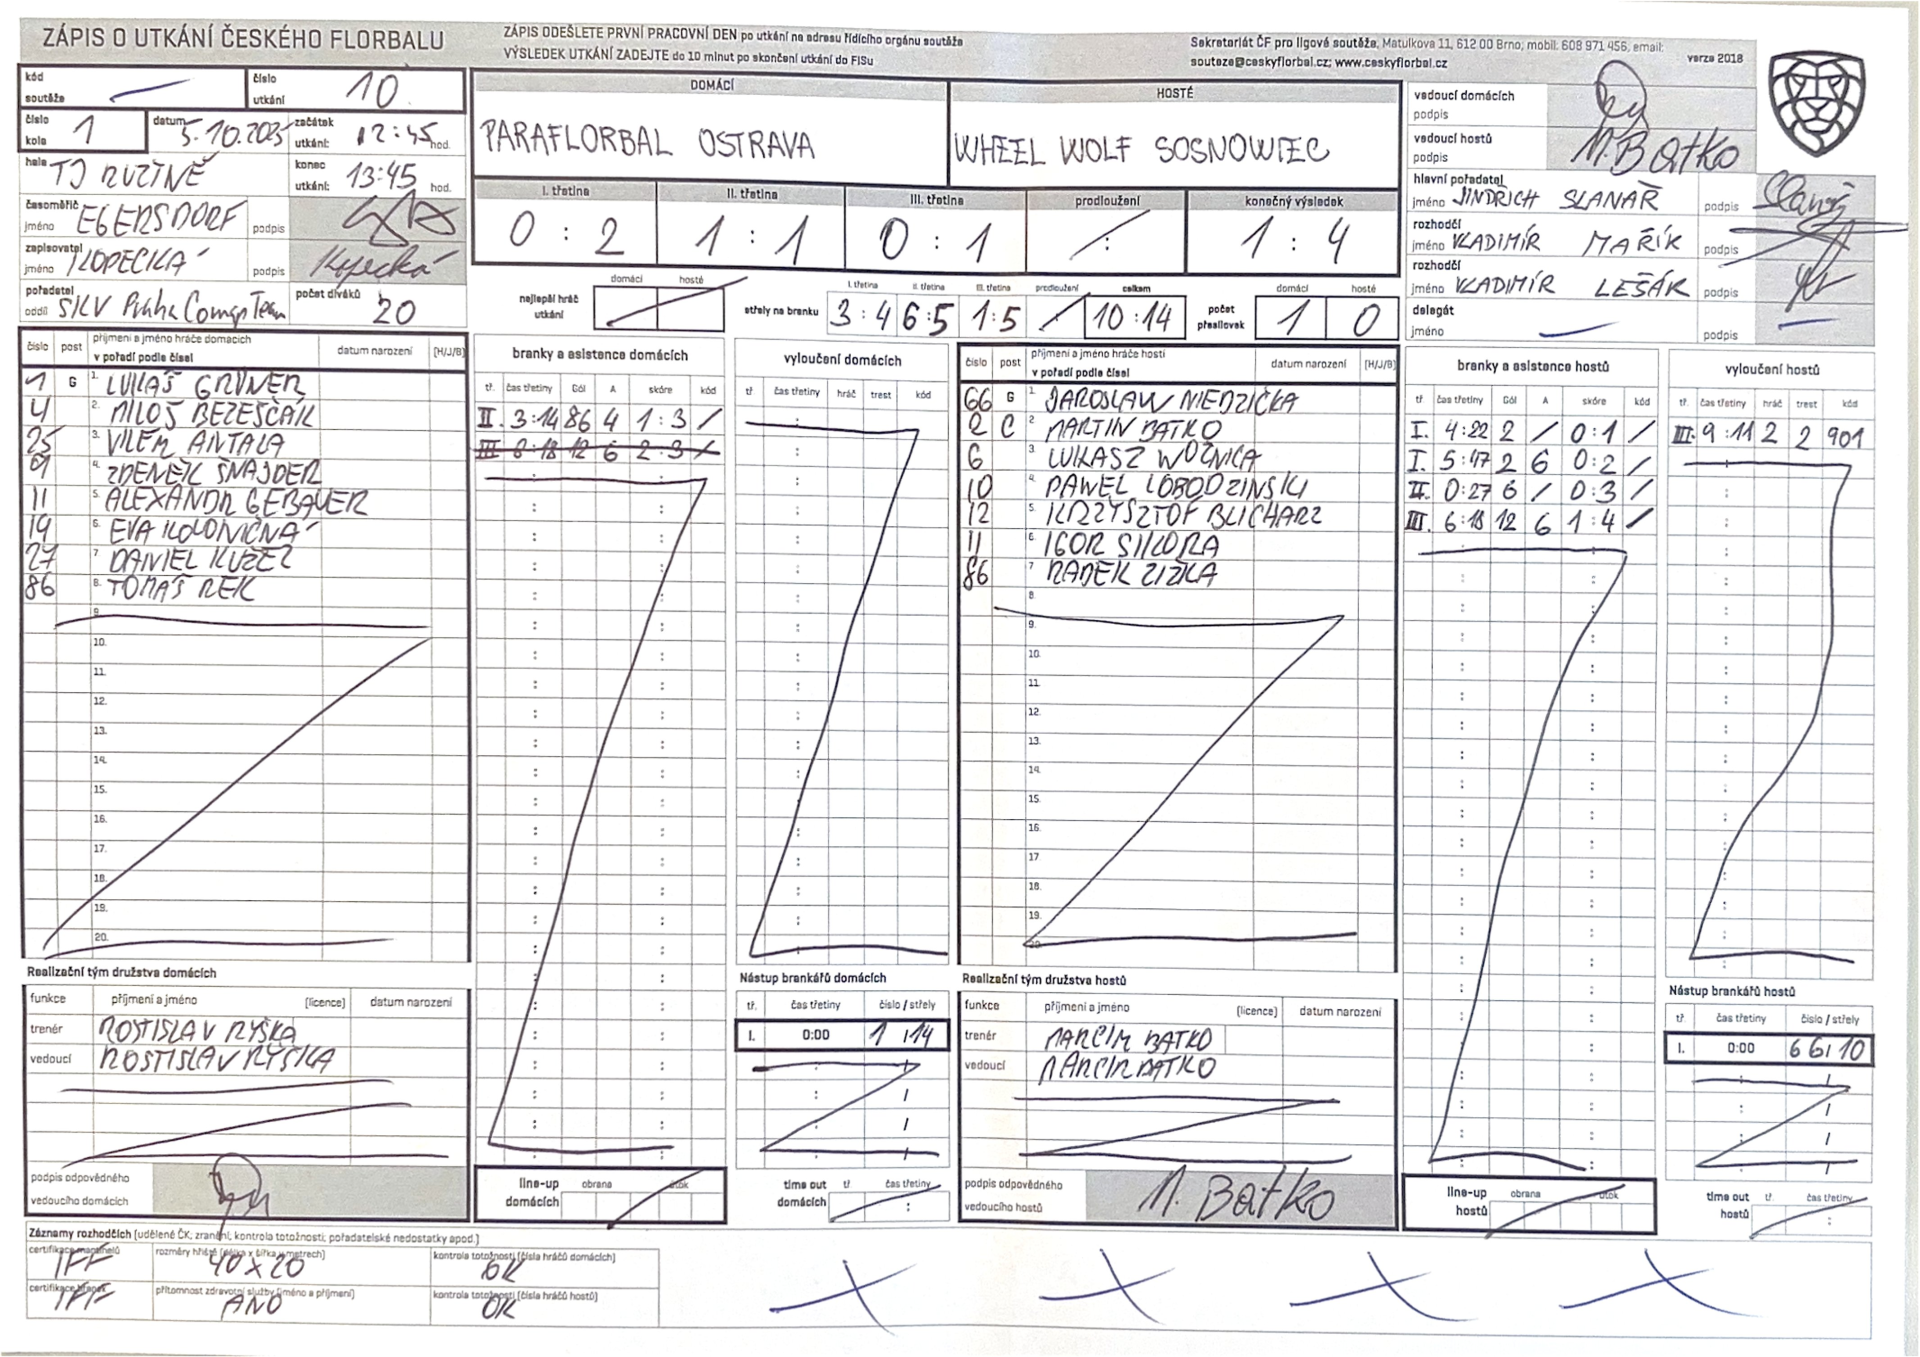 ZÁPIS O UTKÁNÍ ČESKÉHO FLORBALU
ZÁPIS ODEŠLETE PRVNÍ PRACOVNÍ DEN po utkání na adresu řídícího orgánu soutěže
VÝSLEDEK UTKÁNÍ ZADEJTE do 10 minut po skončení utkání do FISu
Sekretariát ČF pro ligové soutěže, Matulkova 11, 612 00 Brno; mobil: 608 971 456, email:
souteze@ceskyflorbal.cz; www.ceskyflorbal.cz
verze 2018
kód soutěže
číslo utkání 10
číslo kola 1
datum 5.10.2025
začátek utkání: 12:45 hod.
hala TJ RUZYNĚ
konec utkání: 13:45 hod.
časoměřič jméno EGERSDORF podpis
zapisovatel jméno KOPECKÁ podpis Kopecká
pořadatel oddíl SKV Praha Comap Team
počet diváků 20
DOMÁCÍ
PARAFLORBAL OSTRAVA
HOSTÉ
WHEEL WOLF SOSNOWIEC
I. třetina II. třetina III. třetina prodloužení konečný výsledek
0 : 2 1 : 1 0 : 1 : 1 : 4
nejlepší hráč utkání domácí hosté
střely na branku
I. třetina II. třetina III. třetina prodloužení celkem
3:4 6:5 1:5 10:14
počet přesilovek domácí hosté
1 0
vedoucí domácích podpis
vedoucí hostů podpis M. Batko
hlavní pořadatel jméno JINDŘICH SLANAŘ podpis Slanař
rozhodčí jméno VLADIMÍR MAŘÍK podpis
rozhodčí jméno VLADIMÍR LEŠÁK podpis
delegát jméno podpis
číslo post příjmení a jméno hráče domácích v pořadí podle čísel datum narození (H/J/B)
1 G 1. LUKÁŠ GRÜNER
4 2. MILOŠ BEZEŠČÁK
25 3. VILÉM ANTALA
4. ZDENĚK ŠNAJDER
11 5. ALEXANDR GEBAUER
19 6. EVA KOLOVNIČNÁ
27 7. DANIEL KUŽEL
86 8. TOMÁŠ REK
9.
10.
11.
12.
13.
14.
15.
16.
17.
18.
19.
20.
branky a asistence domácích
tř. čas třetiny Gól A skóre kód
II. 3:14 86 4 1:3 /
III 6:18 12 6 2:3 /
vyloučení domácích
tř čas třetiny hráč trest kód
číslo post příjmení a jméno hráče hostí v pořadí podle čísel datum narození (H/J/B)
66 G 1. JAROSLAW NIEDZIČKA
2 C 2. MARTIN BATKO
6 3. LUKASZ WOZNICA
10 4. PAWEL LOBODZINSKI
12 5. KRZYSZTOF BLICHARZ
11 6. IGOR SIKORA
86 7. RADEK ZIZKA
8.
9.
10.
11.
12.
13.
14.
15.
16.
17
18.
19.
20.
branky a asistence hostů
tř čas třetiny Gól A skóre kód
I. 4:22 2 / 0:1 /
I. 5:47 2 6 0:2 /
II. 0:27 6 / 0:3 /
III. 6:18 12 6 1:4 /
vyloučení hostů
tř. čas třetiny hráč trest kód
III. 9:11 2 2 901
Realizační tým družstva domácích
funkce příjmení a jméno (licence) datum narození
trenér ROSTISLAV RYŠKA
vedoucí ROSTISLAV RYŠKA
podpis odpovědného vedoucího domácích
Nástup brankářů domácích
tř. čas třetiny číslo / střely
I. 0:00 1 / 14
line-up domácích obrana útok
time out domácích tř čas třetiny
Realizační tým družstva hostů
funkce příjmení a jméno (licence) datum narození
trenér MARCIN BATKO
vedoucí MARCIN BATKO
podpis odpovědného vedoucího hostů M. Batko
line-up hostů obrana útok
Nástup brankářů hostů
tř. čas třetiny číslo / střely
I. 0:00 66/10
time out hostů tř. čas třetiny
Záznamy rozhodčích (udělené ČK; zranění, kontrola totožnosti; pořadatelské nedostatky apod.)
certifikace mantinelů IFF
rozměry hřiště (délka x šířka v metrech) 40 x 20
kontrola totožnosti (čísla hráčů domácích) OK
certifikace branek IFF
přítomnost zdravotní služby (jméno a příjmení) ANO
kontrola totožnosti (čísla hráčů hostů) OK